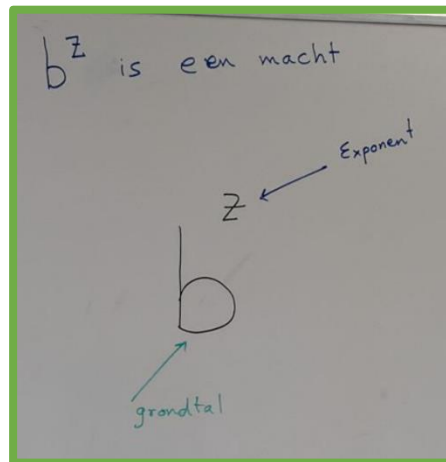 b^z is een macht
Exponent
z
b
grondtal